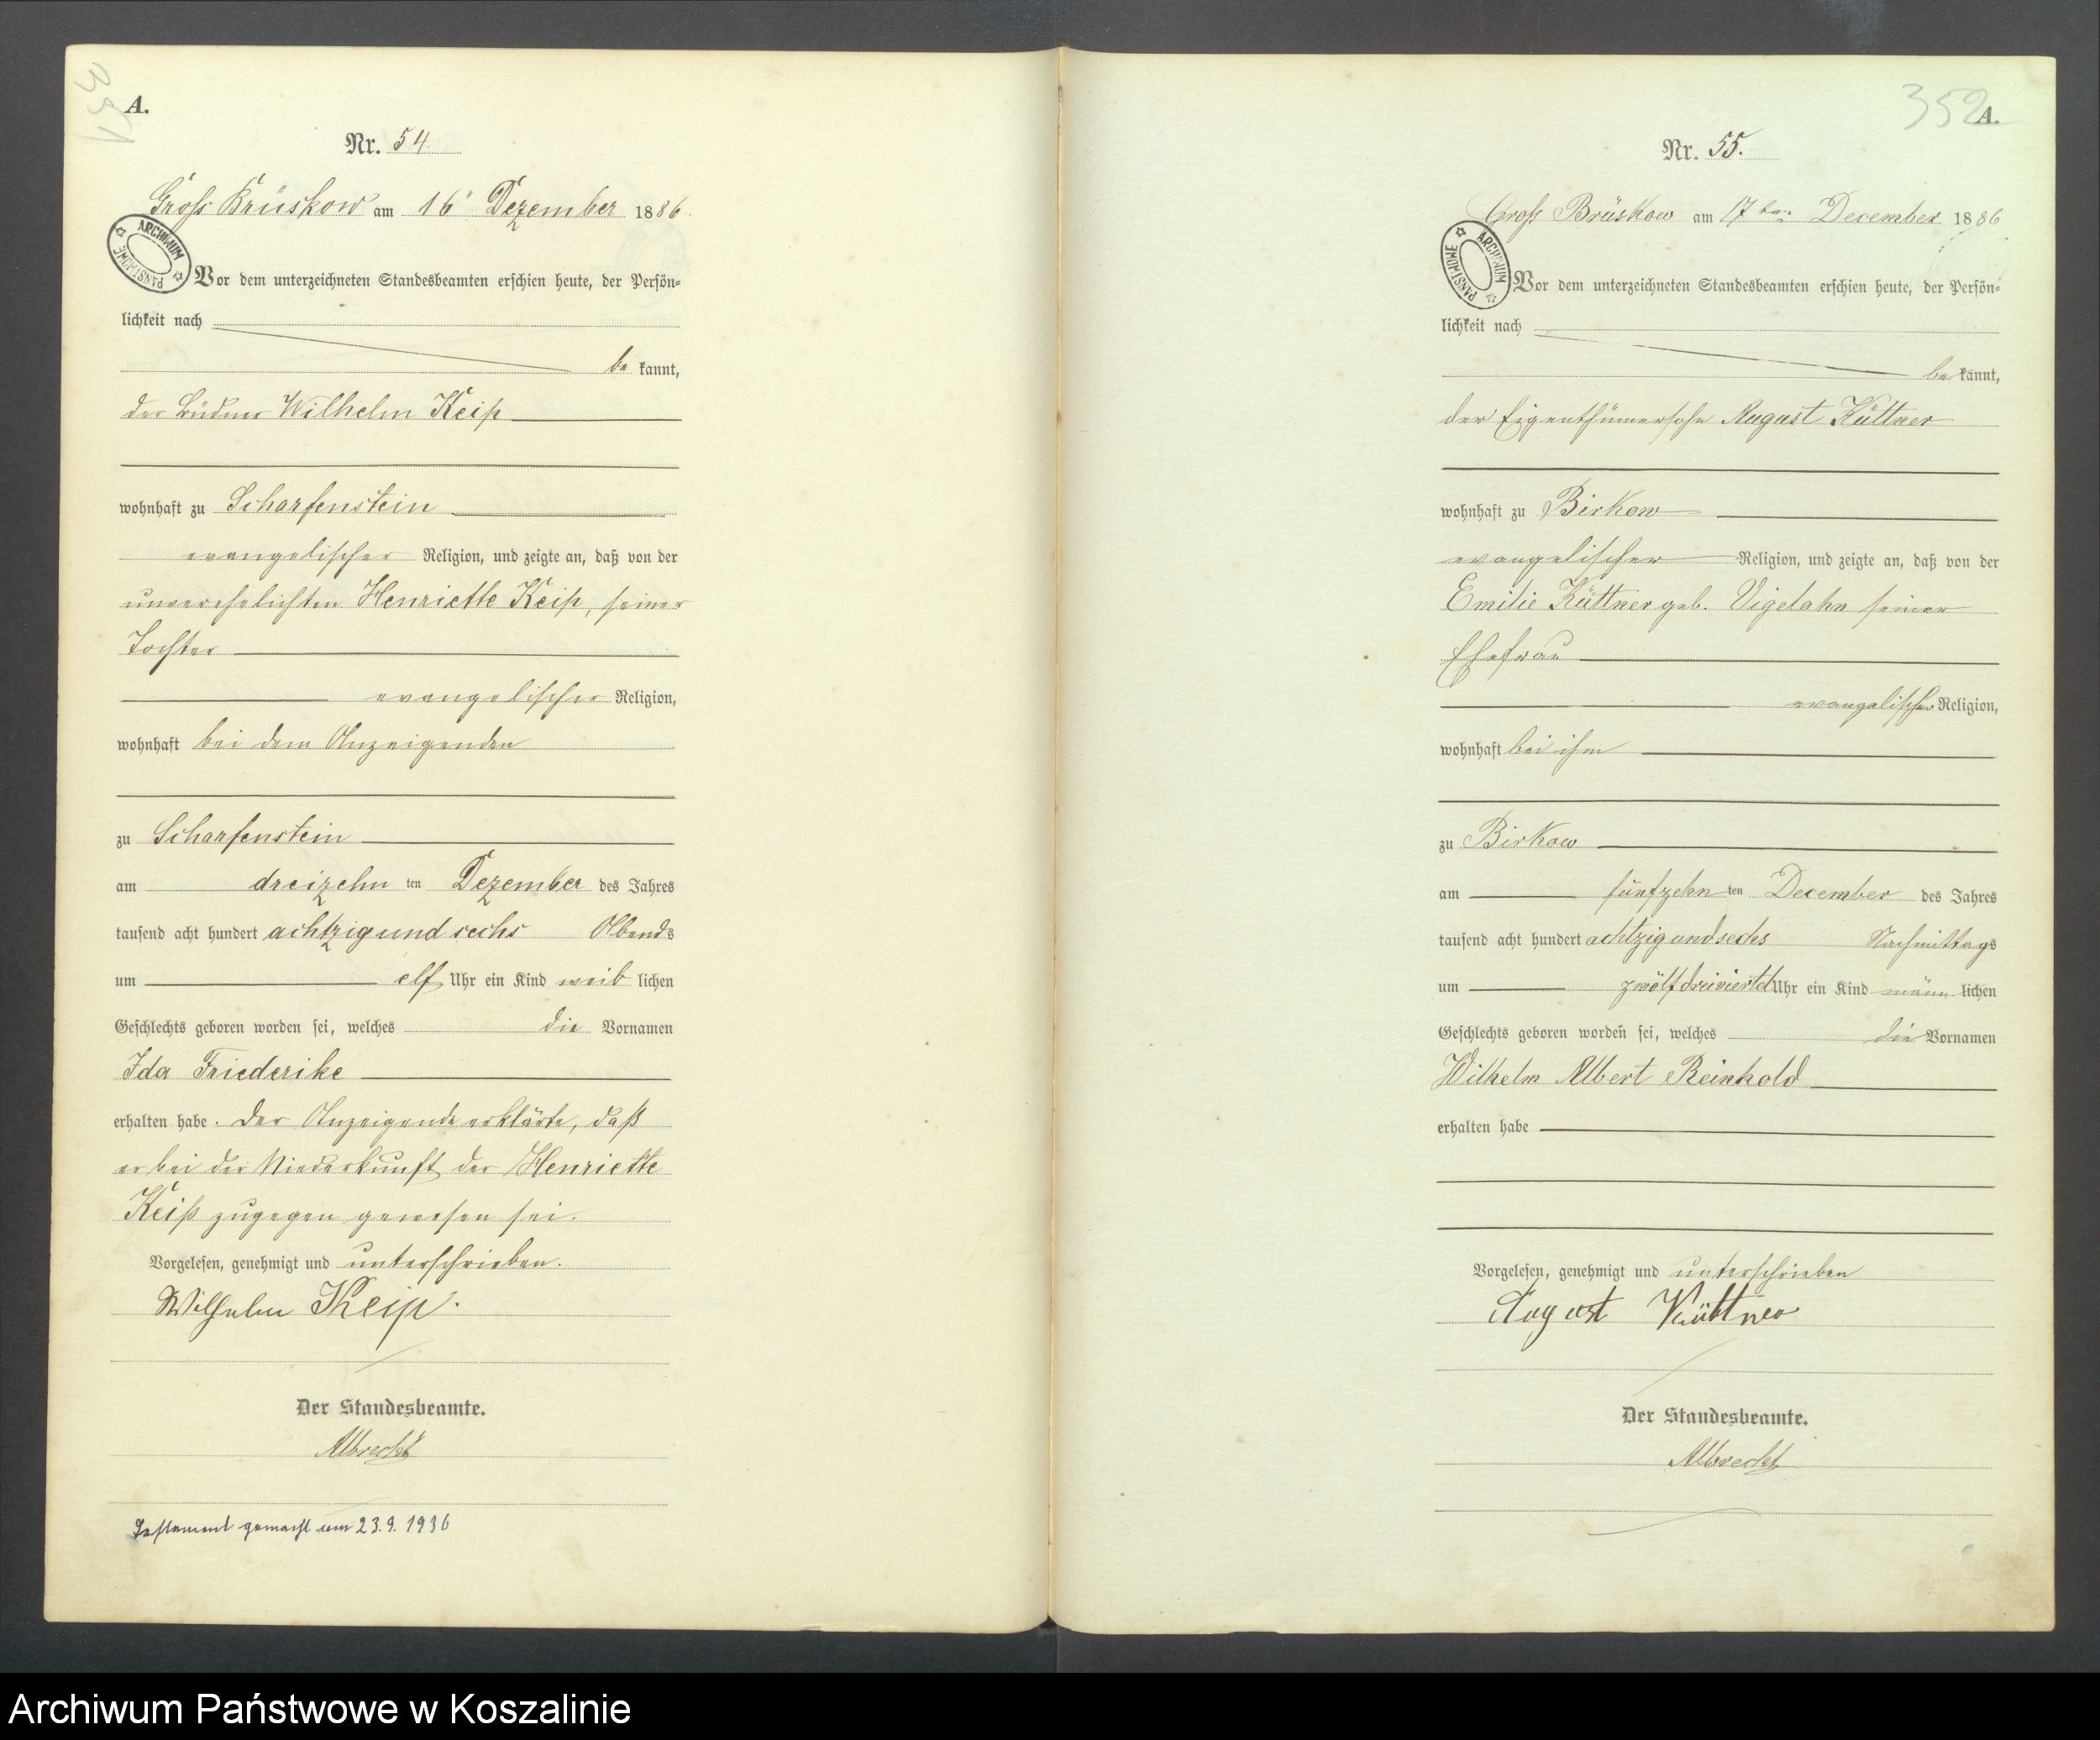 351
A.
Nr. 54.
Gross Brüskow am 16ⁿ Dezember 1886.
ARCHIWUM PAŃSTWOWE
Vor dem unterzeichneten Standesbeamten erschien heute, der Persön=
lichkeit nach
be kannt,
der Büdner Wilhelm Keiß
wohnhaft zu Scharfenstein
evangelischer Religion, und zeigte an, daß von der
unverehelichten Henriette Keiß, seiner
Tochter
evangelischer Religion,
wohnhaft bei dem Anzeigenden
zu Scharfenstein
am dreizehn ten Dezember des Jahres
tausend acht hundert achtzig und sechs Abends
um elf Uhr ein Kind weib lichen
Geschlechts geboren worden sei, welches die Vornamen
Ida Friederike
erhalten habe. Der Anzeigende erklärte, daß
er bei der Niederkunft der Henriette
Keiß zugegen gewesen sei.
Vorgelesen, genehmigt und unterschrieben.
Wilhelm Keiß.
Der Standesbeamte.
Albrecht
Testament gemacht am 23.9.1936
352
A.
Nr. 55.
Groß Brüskow am 17ten December 1886
ARCHIWUM PAŃSTWOWE
Vor dem unterzeichneten Standesbeamten erschien heute, der Persön=
lichkeit nach
be kannt,
der Eigenthümersohn August Küttner
wohnhaft zu Birkow
evangelischer Religion, und zeigte an, daß von der
Emilie Küttner geb. Vigelahn seiner
Ehefrau
evangelischer Religion,
wohnhaft bei ihm
zu Birkow
am fünfzehn ten December des Jahres
tausend acht hundert achtzig und sechs Nachmittags
um zwölf dreiviertel Uhr ein Kind männ lichen
Geschlechts geboren worden sei, welches die Vornamen
Wilhelm Albert Reinhold
erhalten habe
Vorgelesen, genehmigt und unterschrieben
August Küttner
Der Standesbeamte.
Albrecht
Archiwum Państwowe w Koszalinie